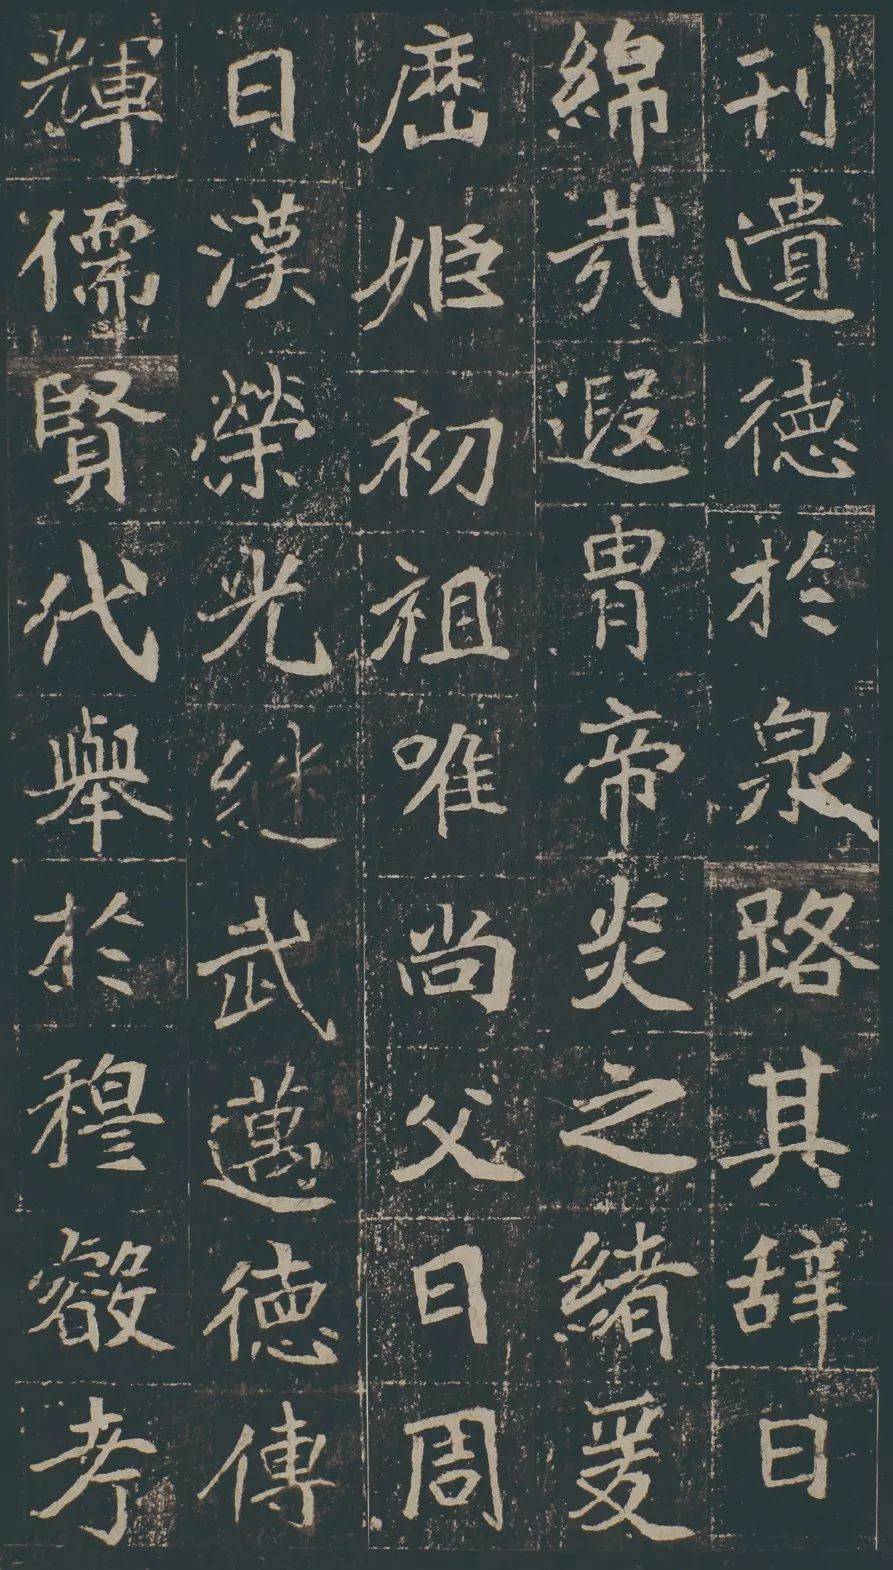 刊遺德於泉路其辞曰
綿㢤遐冑帝炎之緒爰
歷姬初祖唯尚父曰周
曰漢榮光繼武邁德傳
輝儒賢代舉於穆叡考